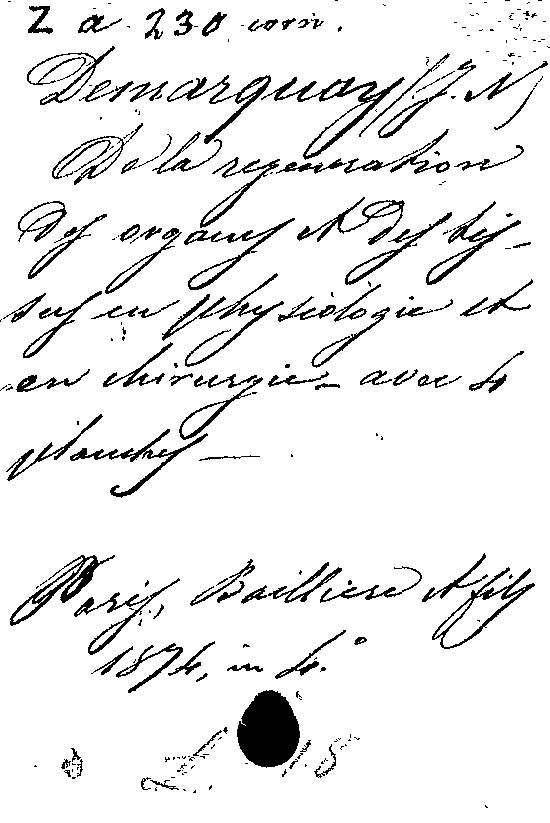 Z a 230 corn.
Demarquay (J. N)
De la regeneration
des organes et des tis-
sus en physiologie et
en chirurgie - avec 4
planches —
Paris, Bailliere et fils
1874, in 4.°
L. 18